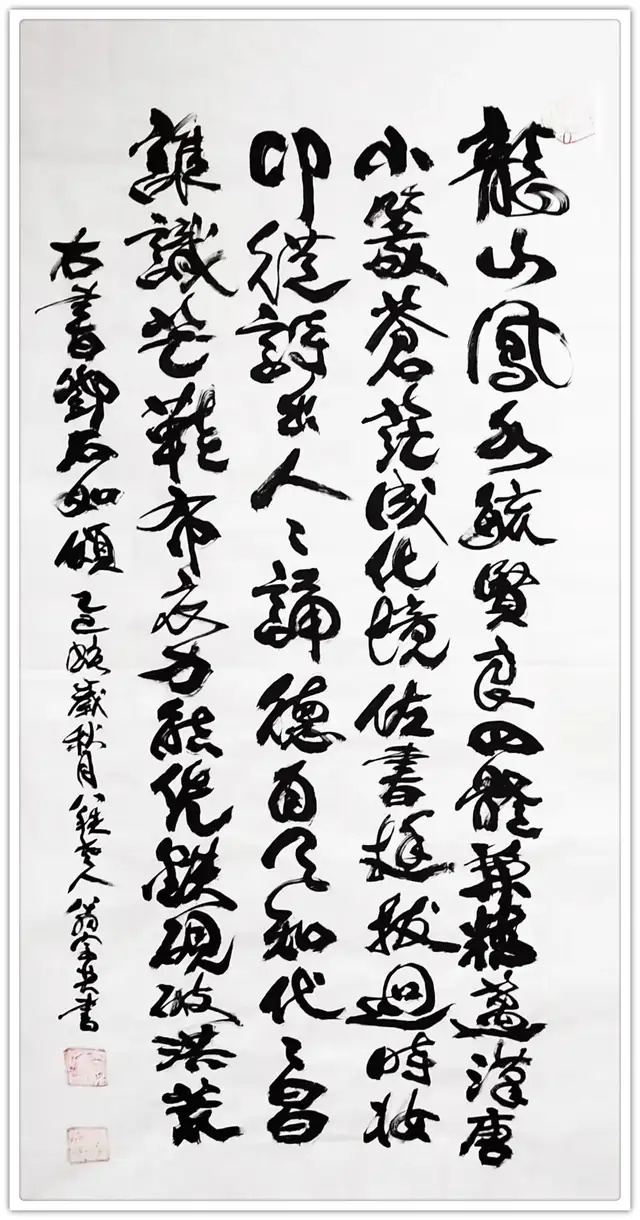 龍山鳳水毓賢良四體兼精邁漢唐
小篆蒼茫成化境佐書挺拔迴時妝
印從詩出人々誦德自天知代々昌
誰識芒鞋布衣力能凭鐵硯破洪荒
右書鄧石如頌 乙巳蛇歲秋月八秩老人翁書